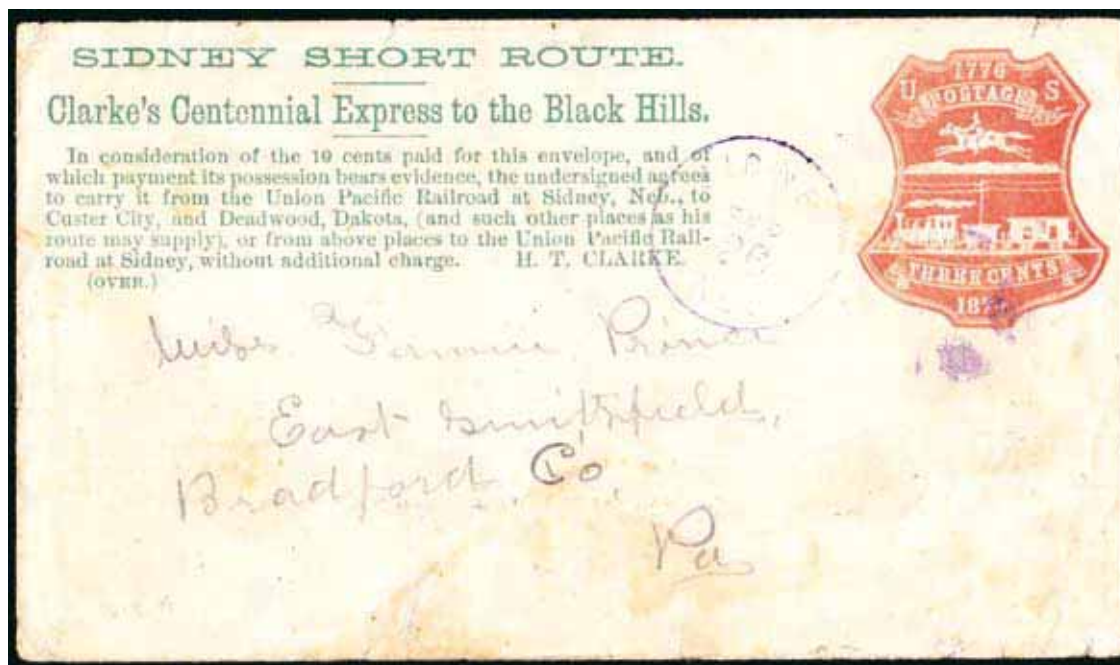 SIDNEY SHORT ROUTE.
Clarke's Centennial Express to the Black Hills.
In consideration of the 10 cents paid for this envelope, and of
which payment its possession bears evidence, the undersigned agrees
to carry it from the Union Pacific Railroad at Sidney, Neb., to
Custer City, and Deadwood, Dakota, (and such other places as his
route may supply), or from above places to the Union Pacific Rail-
road at Sidney, without additional charge. H. T. CLARKE.
(OVER.)
1776
U S
POSTAGE
THREE CENTS
Miss Fannie Prince
East Smithfield,
Bradford Co.
Pa